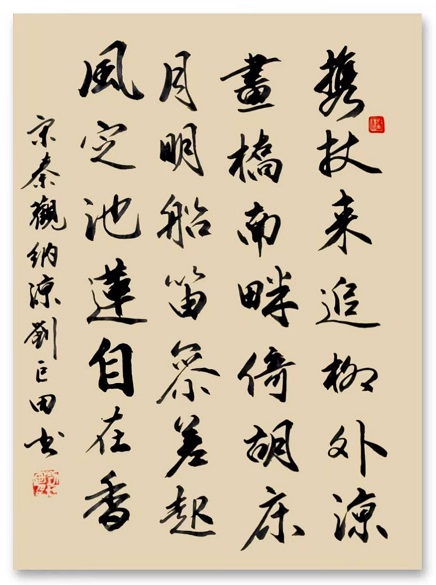 携杖来追柳外涼
畫橋南畔倚胡床
月明船笛參差起
風定池蓮自在香
宋秦觀納涼劉巨田书